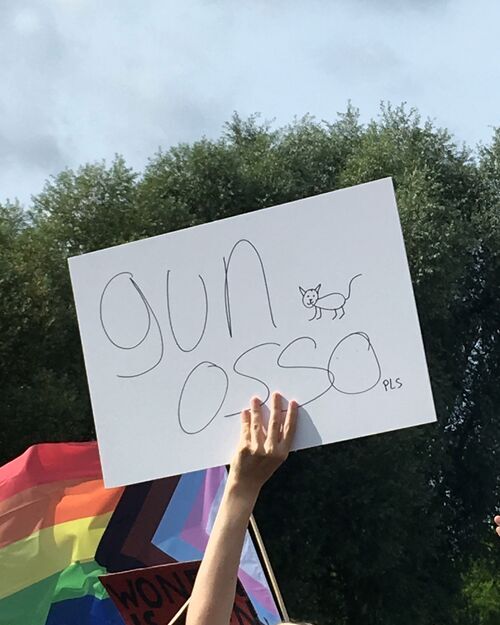 gun
osso
PLS
WON
IS